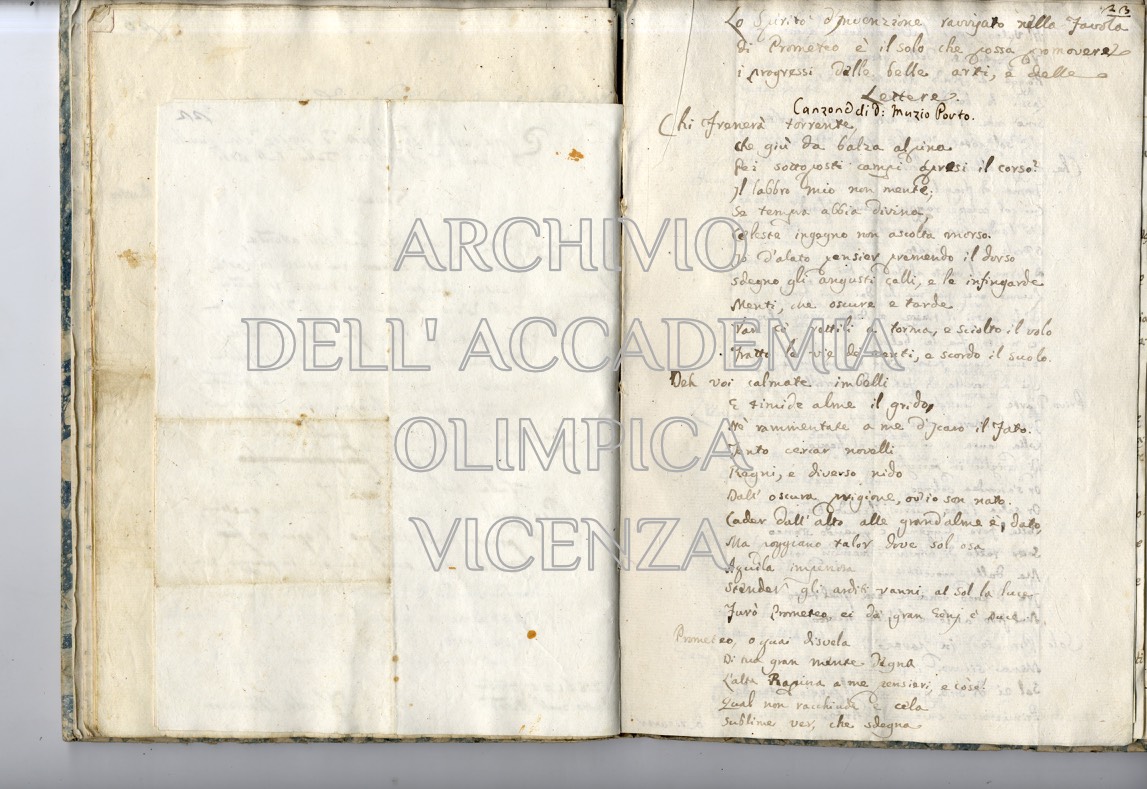 23
Lo Spirito d'Invenzione ravvisato nella Favola
di Prometeo è il solo che possa promovere
i progressi delle belle arti, e delle
Lettere.
Canzone di D: Muzio Porto.
Chi frenerà torrente,
che giù da balza alpina
Pei sottoposti campi apresi il corso?
Il labbro mio non mente;
Se tempra abbia divina,
Celeste ingegno non ascolta morso.
Io d'alato pensier premendo il dorso
sdegno gli angusti calli, e le infingarde
Menti, che oscure e tarde
Van ai rottili a torma, e sciolto il volo
Tratto le vie de venti, e scordo il suolo.
Deh voi calmate imbelli
E timide alme il grido,
Nè rammentate a me d'Icaro il Fato.
Tento cercar novelli
Regni, e diverso nido
Dall' oscura prigione, ov'io son nato.
Cader dall'alto alle grand'alme è dato,
Ma poggiano talor dove sol osa
Aquila imperiosa
Stender gli arditi vanni, al sol la luce
Furò Prometeo, ei da gran Genj è Duce.
Prometeo, o quai disvela
Di tua gran mente degna
L'alta Rapina a me pensieri, e cose!
Qual non racchiude e cela
sublime ver, che sdegna
ARCHIVIO
DELL' ACCADEMIA
OLIMPICA
VICENZA